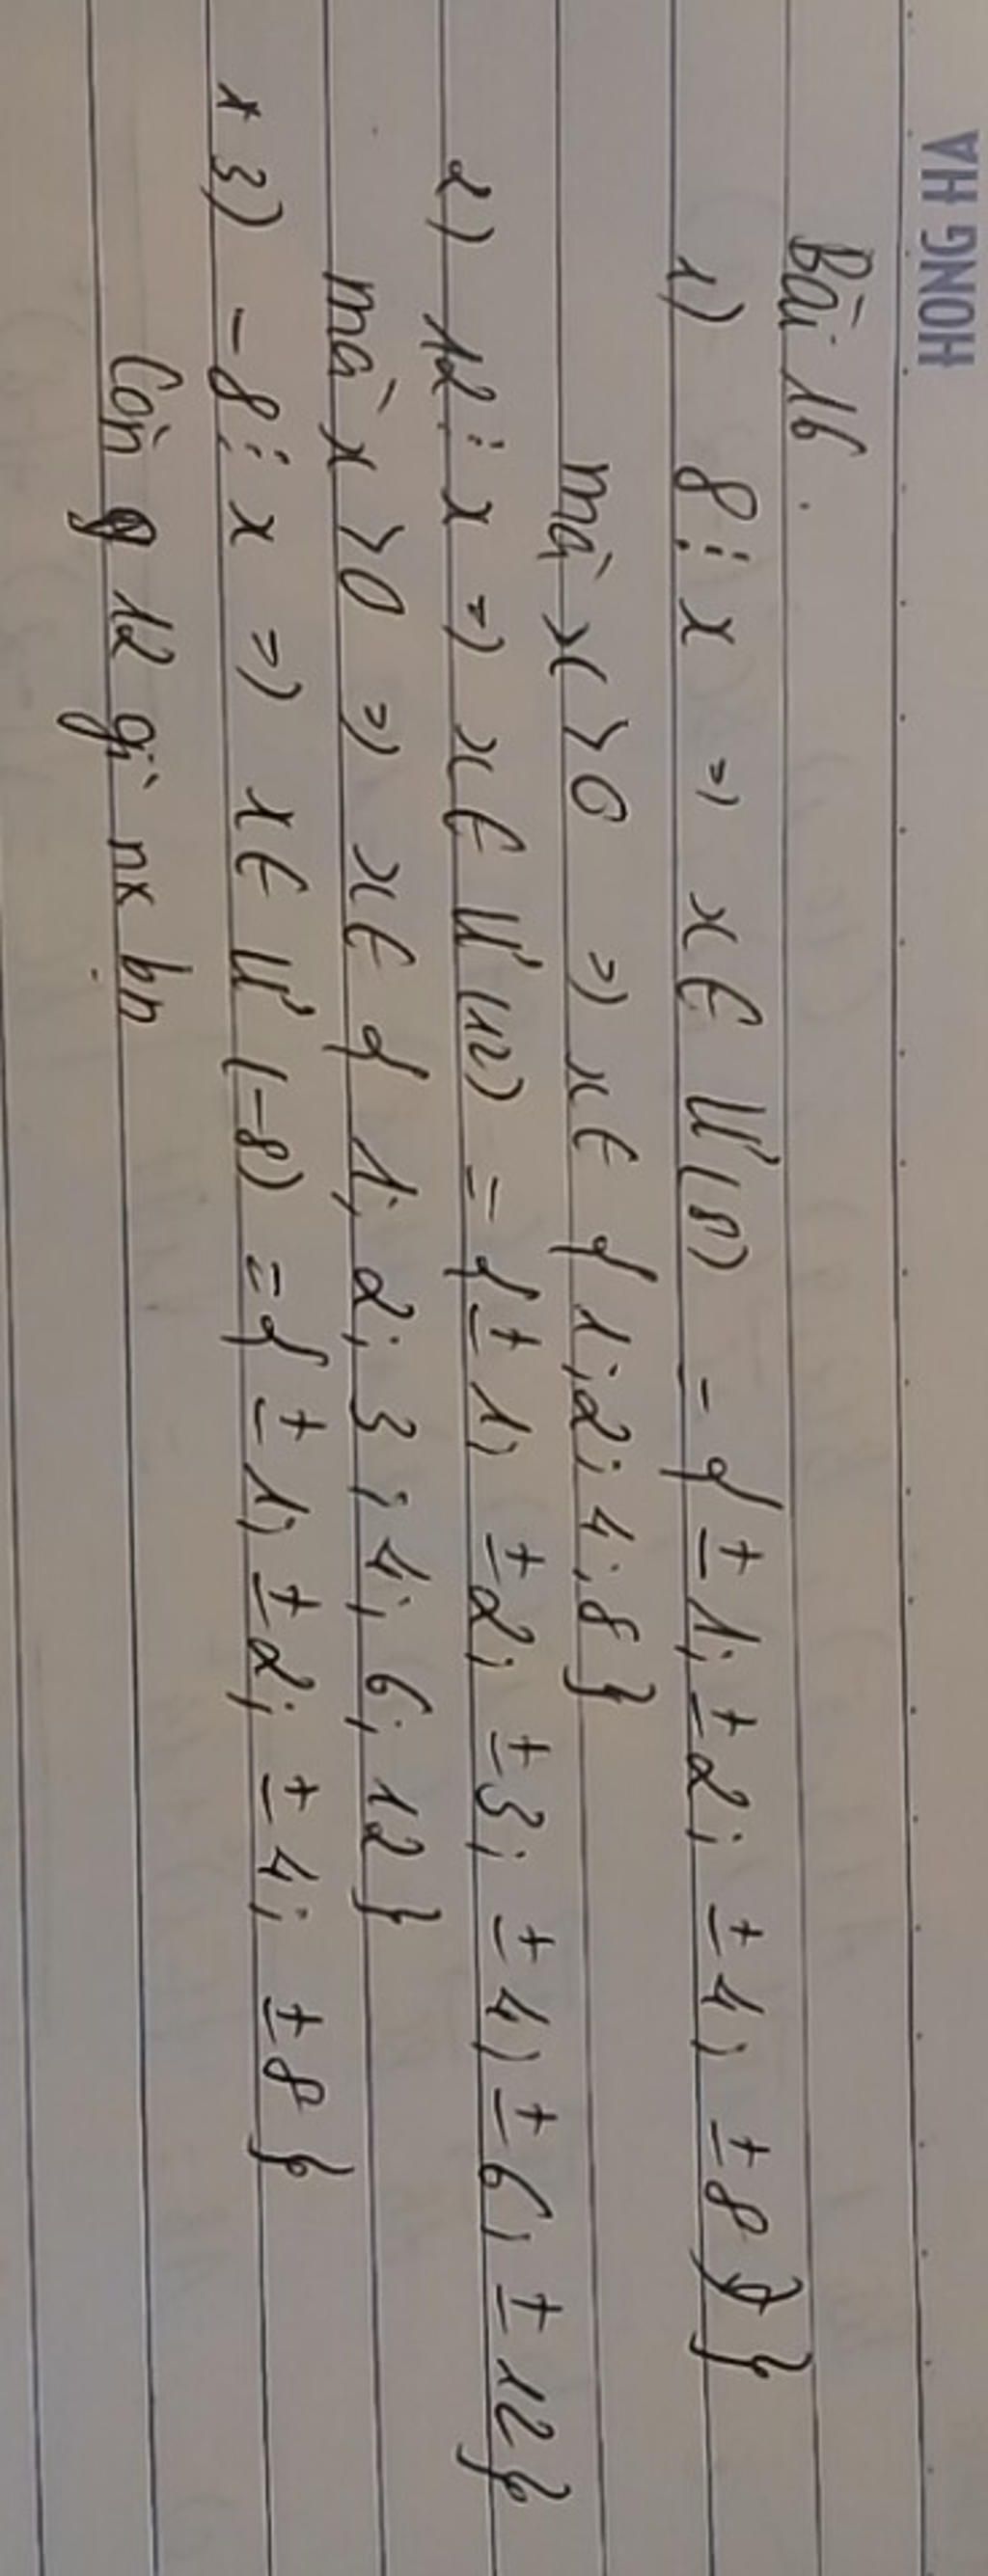 HONG HA
Bài 16.
1) 8 ⋮ x => x ∈ Ư(8) = { ± 1; ± 2; ± 4; ± 8 }
mà x > 0 => x ∈ { 1; 2; 4; 8 }
2) 12 ⋮ x => x ∈ Ư(12) = { ± 1; ± 2; ± 3; ± 4; ± 6; ± 12 }
mà x > 0 => x ∈ { 1; 2; 3; 4; 6; 12 }
* 3) - 8 ⋮ x => x ∈ Ư (-8) = { ± 1; ± 2; ± 4; ± 8 }
Còn 12 gì nx bn